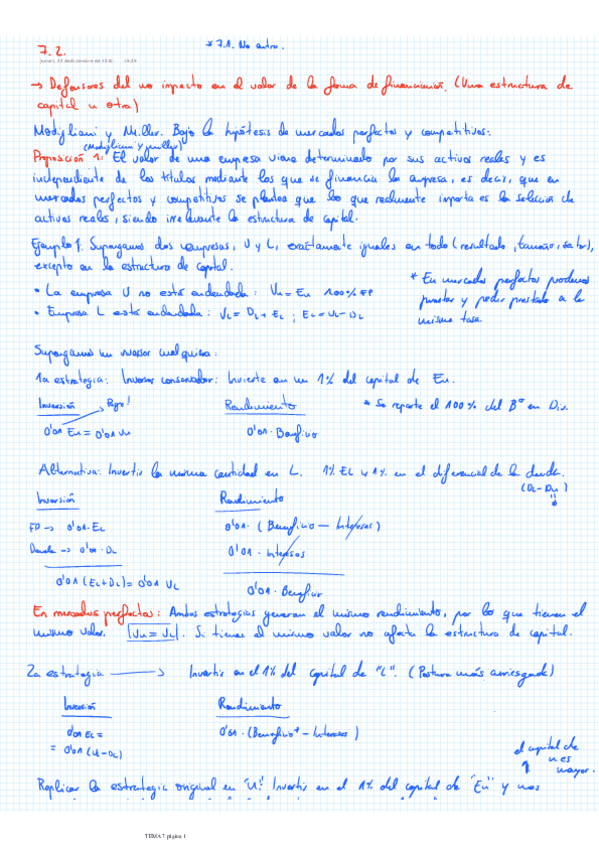 7.2.
* 7.1. No entra.
→ Defensores del no impacto en el valor de la forma de financiación. (Una estructura de
capital u otra)
Modigliani y Miller. Bajo la hipótesis de mercados perfectos y competitivos:
(Modigliani y Muller)
Proposición 1: El valor de una empresa viene determinado por sus activos reales y es
independiente de los títulos mediante los que se financia la empresa, es decir, que en
mercados perfectos y competitivos se plantea que lo que realmente importa es la selección de
activos reales, siendo irrelevante la estructura de capital.
Ejemplo 1. Supongamos dos empresas, U y L, exactamente iguales en todo (resultado, tamaño, sector),
excepto en la estructura de capital.
• La empresa U no está endeudada: Vu = Eu 100% FP
• Empresa L está endeudada: VL = DL + EL ; EL = VL - DL
* En mercados perfectos podemos
prestar y pedir prestado a la
misma tasa.
Supongamos un inversor cualquiera:
1a estrategia: Inversor conservador: Invierte en un 1% del capital de Eu.
Inversión Pago! Rendimiento * Se reparte el 100% del Bº en Div.
0'01 Eu = 0'01 Vu 0'01 · Beneficio
Alternativa: Invertir la misma cantidad en L. 1% EL y 1% en el diferencial de la deuda.
(DL - Du)
0
Inversión Rendimiento
FP → 0'01 · EL 0'01 · (Beneficio - Intereses)
Deuda → 0'01 · DL 0'01 · Intereses
0'01 (EL + DL) = 0'01 VL 0'01 · Beneficio
En mercados perfectos: Ambas estrategias generan el mismo rendimiento, por lo que tienen el
mismo valor. Vu = VL. Si tienen el mismo valor no afecta la estructura de capital.
2a estrategia → Invertir en el 1% del capital de "L". (Postura más arriesgada)
Inversión Rendimiento
0'01 EL = 0'01 · (Beneficio - Intereses)
= 0'01 (VL - DL)
el capital de
u es
mayor.
Replicar la estrategia original en "U": Invertir en el 1% del capital de "Eu" y nos
TEMA 7 página 1